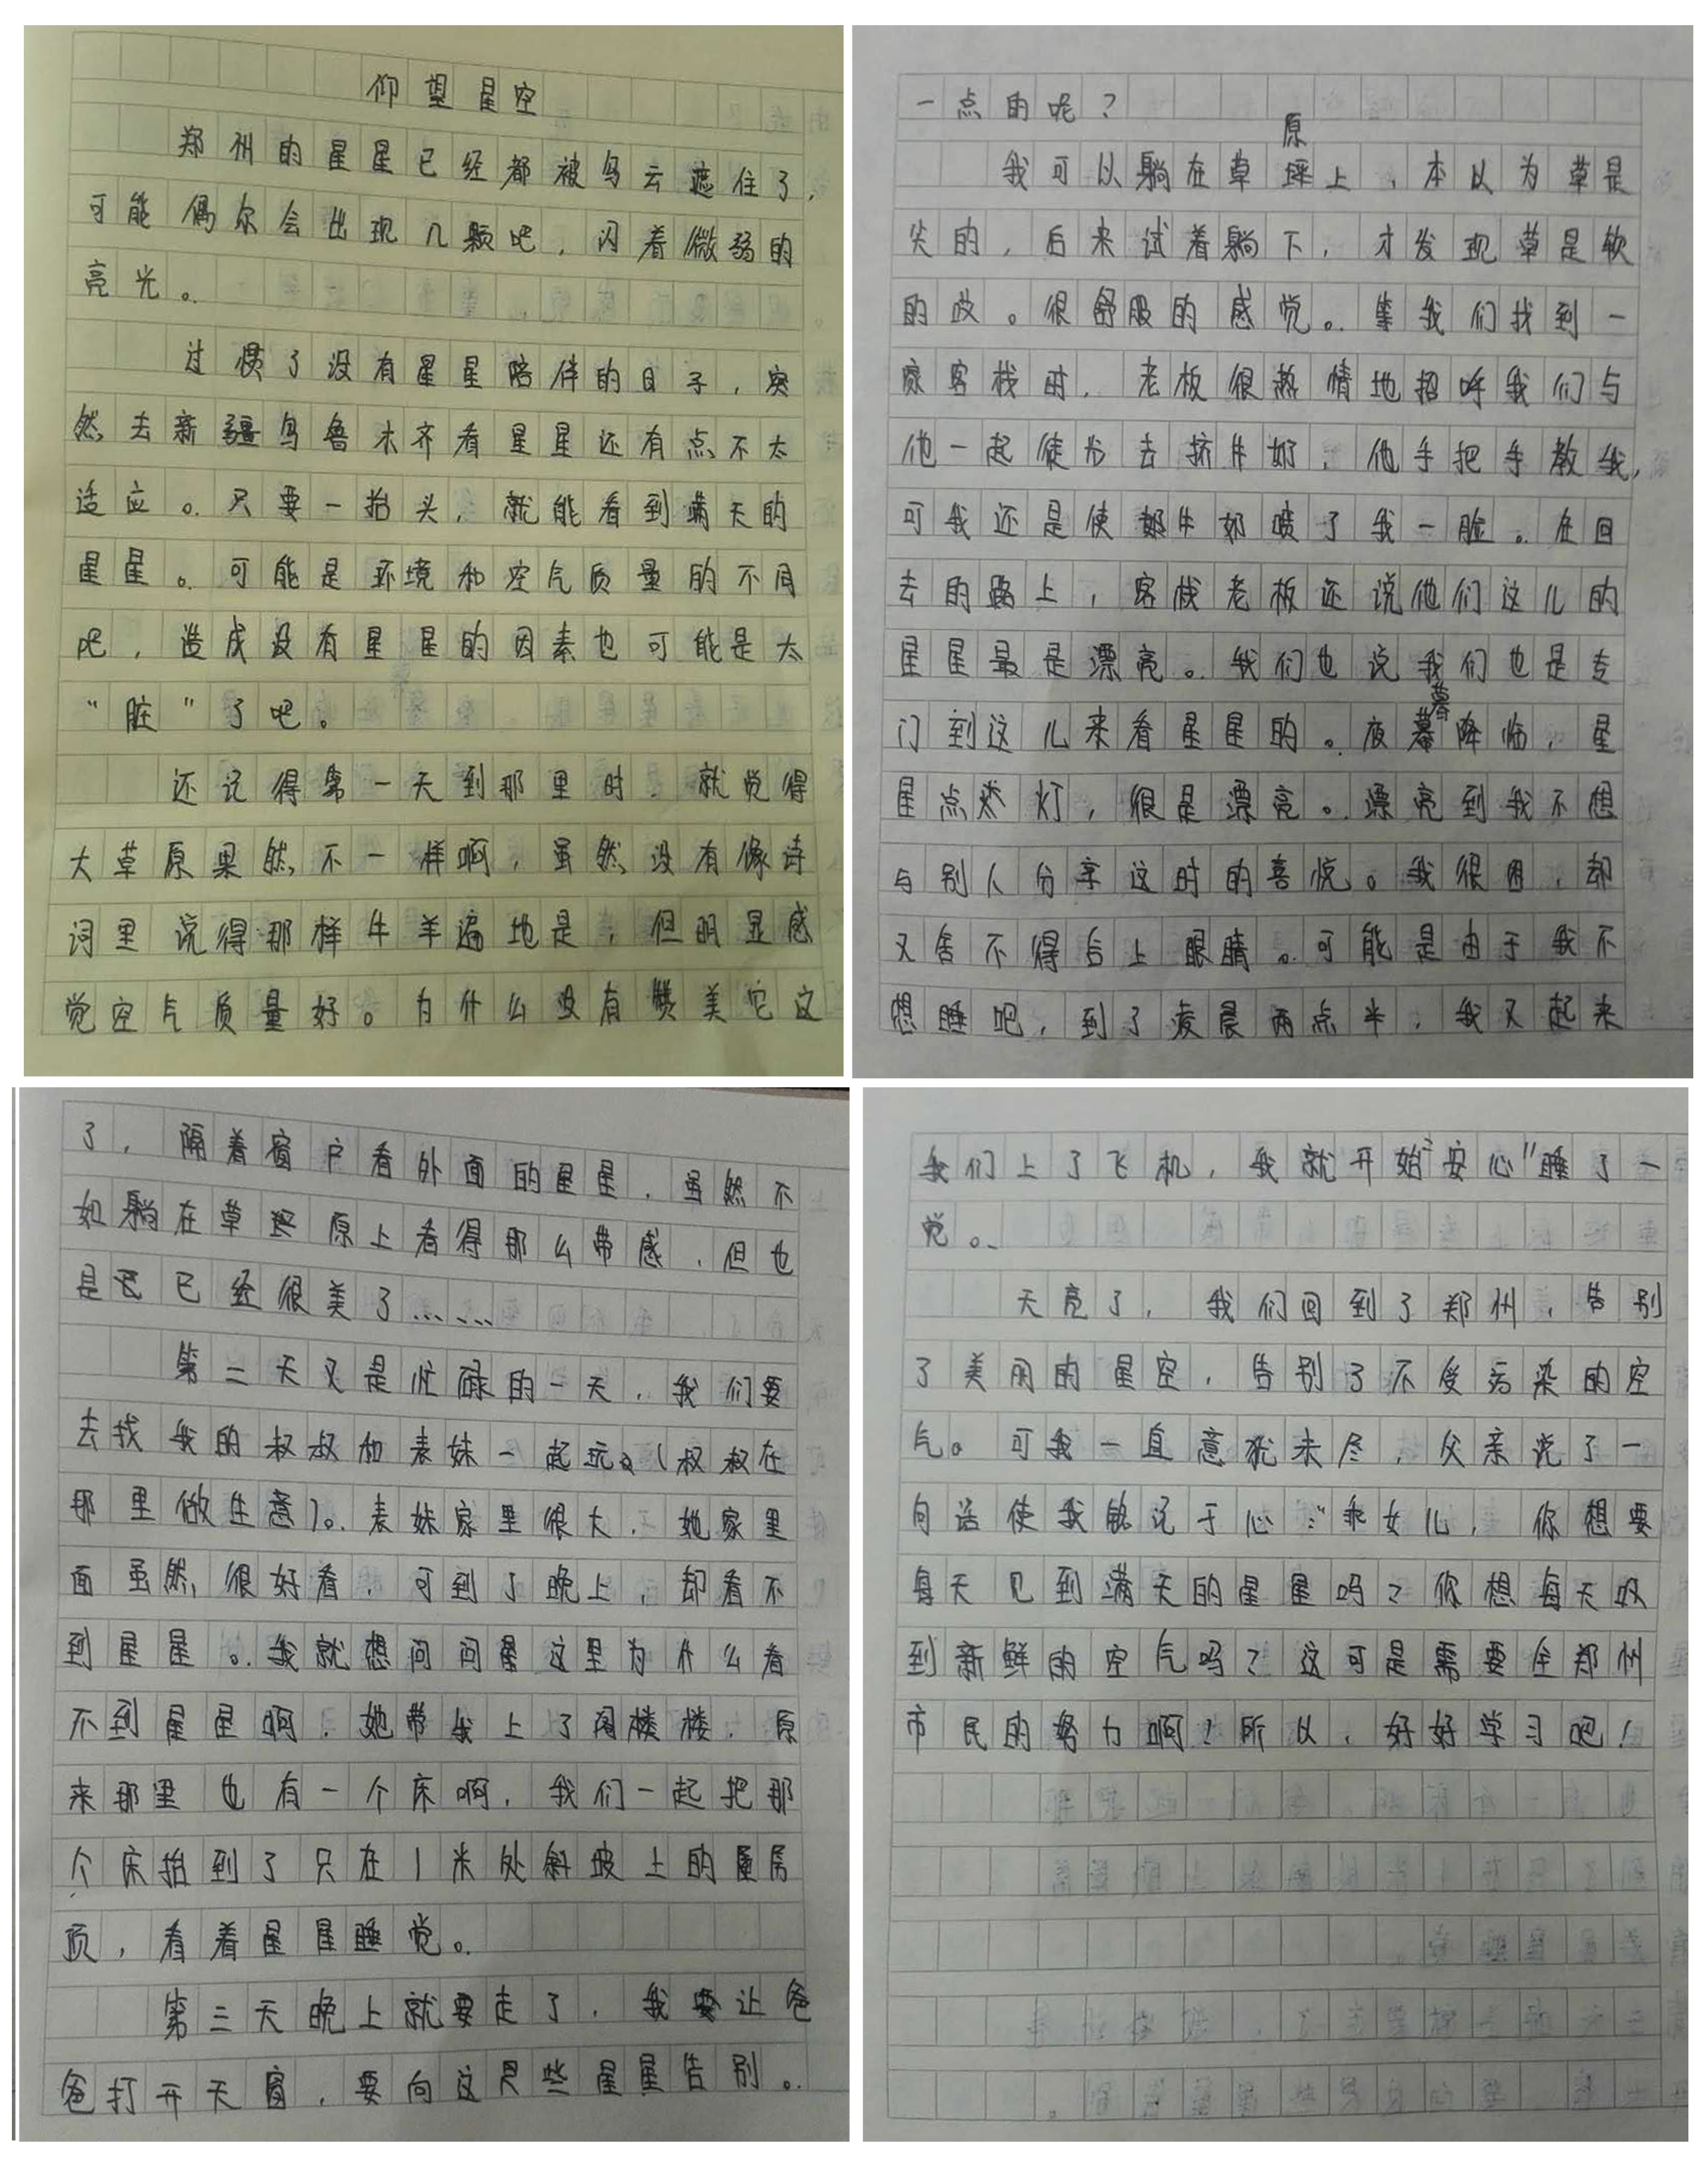 仰望星空
郑州的星星已经都被乌云遮住了,
可能偶尔会出现几颗吧,闪着微弱的
亮光。
过惯了没有星星陪伴的日子,突
然去新疆乌鲁木齐看星星还有点不太
适应。只要一抬头,就能看到满天的
星星。可能是环境和空气质量的不同
吧,造成没有星星的因素也可能是太
“脏”了吧。
还记得第一天到那里时,就觉得
大草原果然不一样啊,虽然没有像诗
词里说得那样牛羊遍地是,但明显感
觉空气质量好。为什么没有赞美它这
一点的呢?
我可以躺在草原上,本以为草是
尖的,后来试着躺下,才发现草是软
的的。很舒服的感觉。等我们找到一
家客栈时,老板很热情地招呼我们与
他一起徒步去挤牛奶,他手把手教我,
可我还是使牛奶喷了我一脸。在回
去的路上,客栈老板还说他们这儿的
星星最是漂亮。我们也说我们也是专
门到这儿来看星星的。夜幕降临,星
星点灯,很是漂亮。漂亮到我不想
与别人分享这时的喜悦。我很困,却
又舍不得合上眼睛。可能是由于我不
想睡吧,到了凌晨两点半,我又起来
了,隔着窗户看外面的星星,虽然不
如躺在草原上看得那么带感,但也
是已经很美了……
第二天又是忙碌的一天,我们要
去找我的叔叔和表妹一起玩(叔叔在
那里做生意)。表妹家里很大,她家里
面虽然很好看,可到了晚上,却看不
到星星。我就想问问这里为什么看
不到星星啊,她带我上了阁楼,原
来那里也有一个床啊,我们一起把那
个床抬到了只在1米处斜坡上的屋
顶,看着星星睡觉。
第三天晚上就要走了,我要让爸
爸打开天窗,要向这些星星告别。
我们上了飞机,我就开始“安心”睡了一
觉。
天亮了,我们回到了郑州,告别
了美丽的星空,告别了不受污染的空
气。可我一直意犹未尽,父亲说了一
句话使我铭记于心:“乖女儿,你想要
每天见到满天的星星吗?你想每天吸
到新鲜的空气吗?这可是需要全郑州
市民的努力啊!所以,好好学习吧!